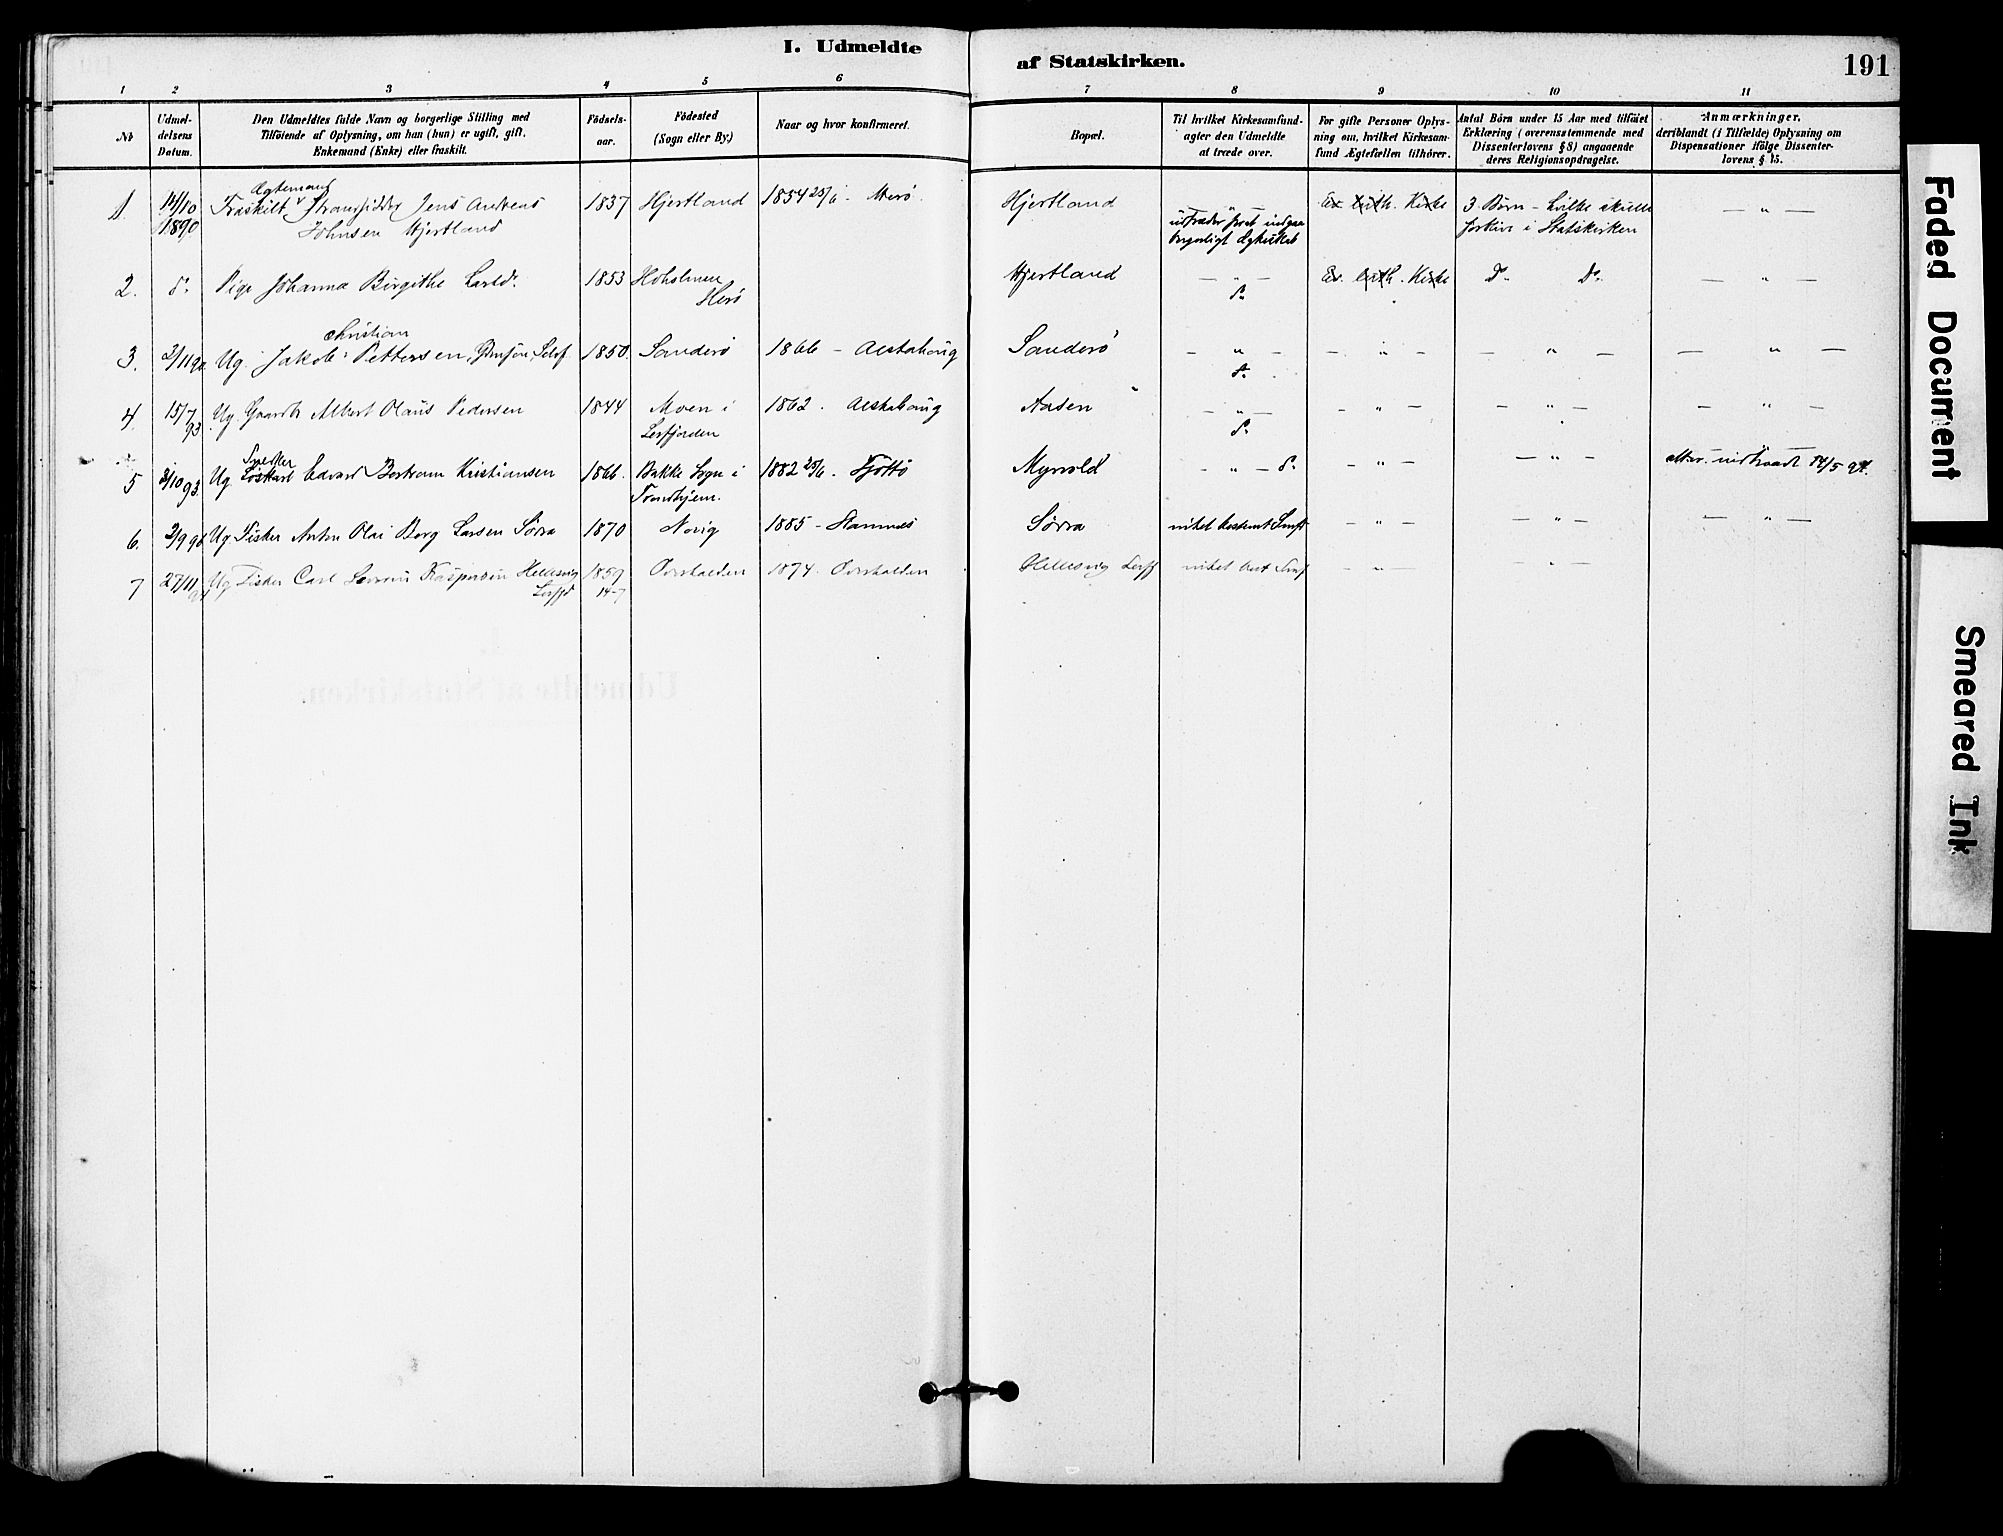 I. Udmeldte
af Statskirken.
191
1 2 3 4 5 6 7 8 9 10 11
No
Udmel-
delsens
Datum.
Den Udmeldtes fulde Navn og borgerlige Stilling med
Tilföiende af Oplysning, om han (hun) er ugift, gift,
Enkemand (Enke) eller fraskilt.
Födsels-
aar.
Födested
(Sogn eller By.)
Naar og hvor konfirmeret.
Bopæl.
Til hvilket Kirkesamfund-
agter den Udmeldte
at træde over.
For gifte Personer Oplys-
ning om, hvilket Kirkesam-
fund Ægtefællen tilhörer.
Antal Börn under 15 Aar med tilföiet
Erklæring (overensstemmende med
Dissenterlovens § 8) angaaende
deres Religionsopdragelse.
Anmærkninger,
deriblandt (i Tilfælde) Oplysning om
Dispensationer ifölge Dissenter-
lovens § 15.
Ægtemand
1. 14/10 Fraskilt Strandsidder Jens Andreas 1837 Hjertland 1854 25/6 - Herö. Hjertland — " — Ev. luth. Kirke 3 Börn - hvilke skulle — " —
1890 Johnsen Hjertland udtræder for at indgaa forblive i Statskirken
borgerligt Ægteskab
2. do Pige Johanna Birgithe Larsd. 1853 Hoholmen Hjertland — " — Ev. luth. Kirke do do — " —
Herö do
Christian
3. 2/11 90 Ug. Jakob Pettersen, 1850. Sanderö 1866 - Alstahaug Sanderö — " — — " — — " — — " —
do
4. 15/7 93 Ug. Albert Olaus Pedersen 1844 Moen i 1862. Alstahaug Aasen — " — — " — — " — — " —
Leirfjorden do
Snedker
5 3/10 93. Ug. Löskarl Edvard Bertram Kristiansen 1866. Bakke Sogn i 1882 25/6. Tjöttö Myrvold — " — do — " — — " — atter indtraadt 14/5 94.
Trondhjem.
6. 2/9 96 Ug. Fisker Anton Olai Berg Larsen Sörra 1870 Norvig 1885 - Stamnes Sörra intet bestemt Smfd — " — — " — — " —
7 27/11 Ug. Fisker Carl Severin Kaspersen Hellesvig 1859 Overhalden 1874. Overhalden Hellesvig Leirfj intet best Smf — " — — " —
Leirfjd 14-7
Faded Document
Smeared Ink